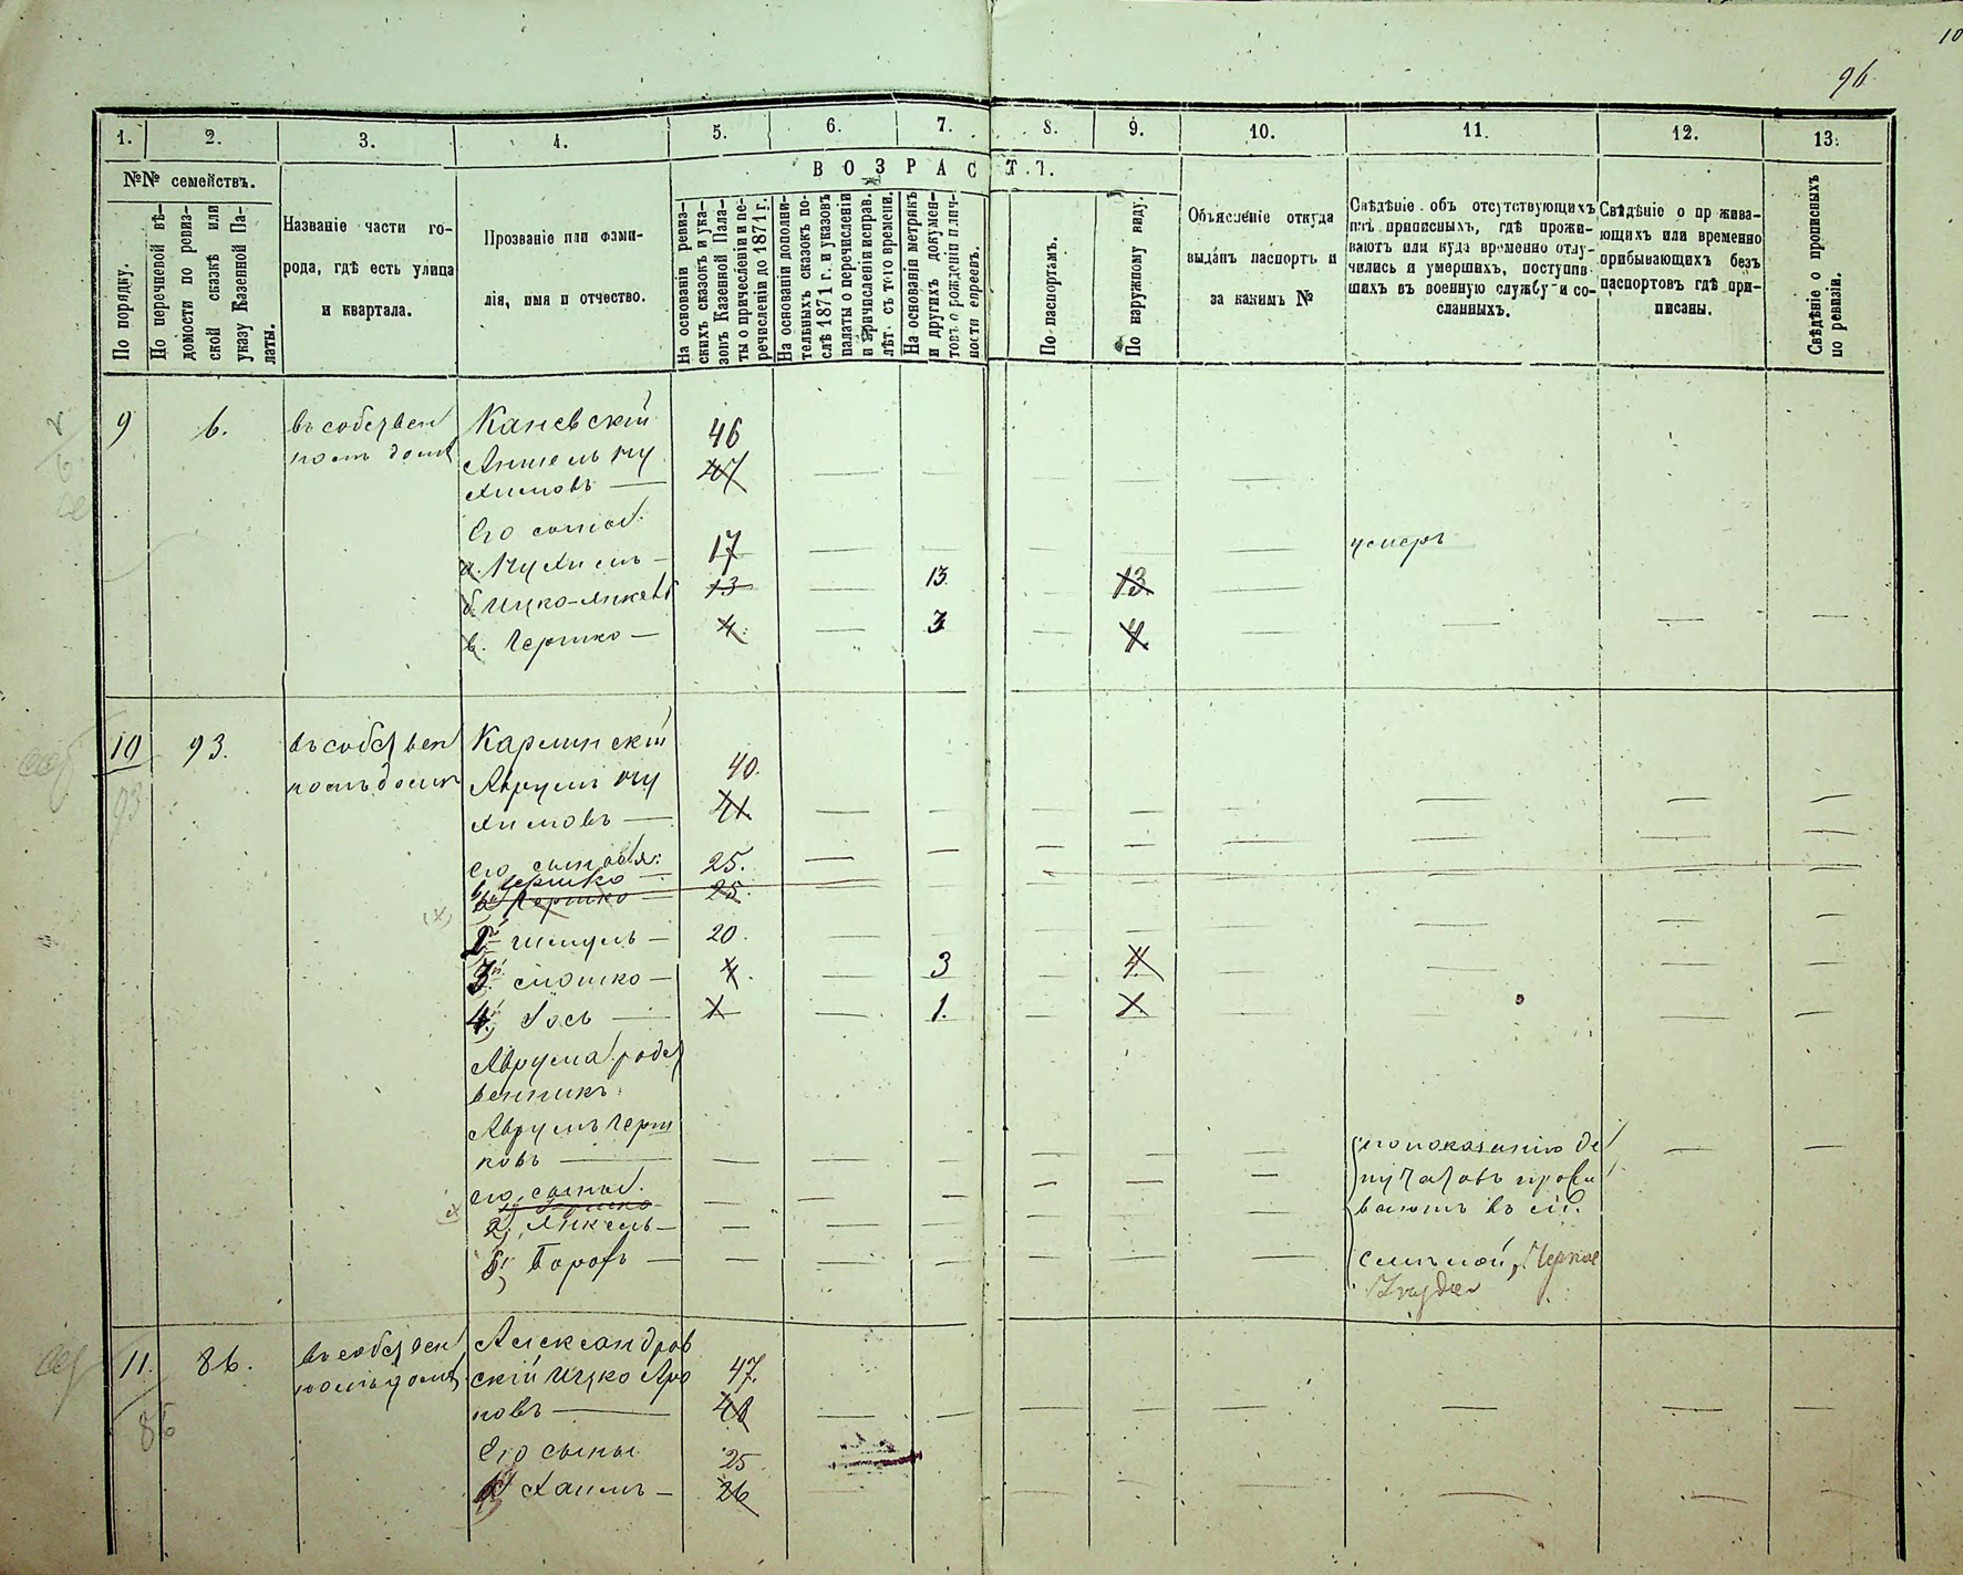 10
96
1.
2.
3.
4.
5.
6.
7.
8.
9.
10.
11.
12.
13.
№№ семействъ.
ВОЗРАСТЪ.
По порядку.
По перечневой вѣ-
домости по ревиз-
ской сказкѣ или
указу Казенной Па-
латы.
Названіе части го-
рода, гдѣ есть улица
и квартала.
Прозваніе или фами-
лія, имя и отчество.
На основаніи ревиз-
скихъ сказокъ и ука-
зовъ Казенной Пала-
ты о причисленіи и пе-
речисленіи до 1871 г.
На основаніи дополни-
тельныхъ сказокъ по-
слѣ 1871 г. и указовъ
палаты о перечисленіи
и причисленіи исправ.
лѣт. съ того времени.
На основаніи метрикъ
и другихъ докумен-
товъ о рожденіи лич-
ности евреевъ.
По паспортамъ.
По наружному виду.
Объясненіе откуда
выданъ паспортъ и
за какимъ №
Свѣдѣніе объ отсутствующихъ
приписныхъ, гдѣ прожи-
ваютъ или куда временно отлу-
чились и умершихъ, поступив-
шихъ въ военную службу и со-
сланныхъ.
Свѣдѣніе о прожива-
ющихъ или временно
прибывающихъ безъ
паспортовъ гдѣ при-
писаны.
Свѣдѣніе о прописныхъ
по ревизіи.
9
6.
въ собствен
номъ домѣ
Каневскій
Аншель Ну
химовъ —
46
47
Его сыновья
а. Нухимъ —
17
умеръ
б. Ицко-Янкель
13
13.
13.
в. Гершко —
4.
3
4.
10
93.
93
въ собствен
номъ домѣ
Карлинскій
Аврумъ Ну
химовъ —
40.
41.
его сыновья:
25.
Гершко —
Гершко —
25.
2й Шмуль —
20.
3й Мошко —
4.
3
4.
4й Іось —
1.
Аврума родст
венникъ
Аврумъ Герш
ковъ —
по показанію де
путатовъ прожи
ваютъ въ м.
его сыновья.
2) Янкель —
Борохъ —
11.
86.
86
въ собствен
номъ домѣ
Александров
скій Ицко Аро
новъ —
47.
48
Его сыны
25
Хаимъ —
26